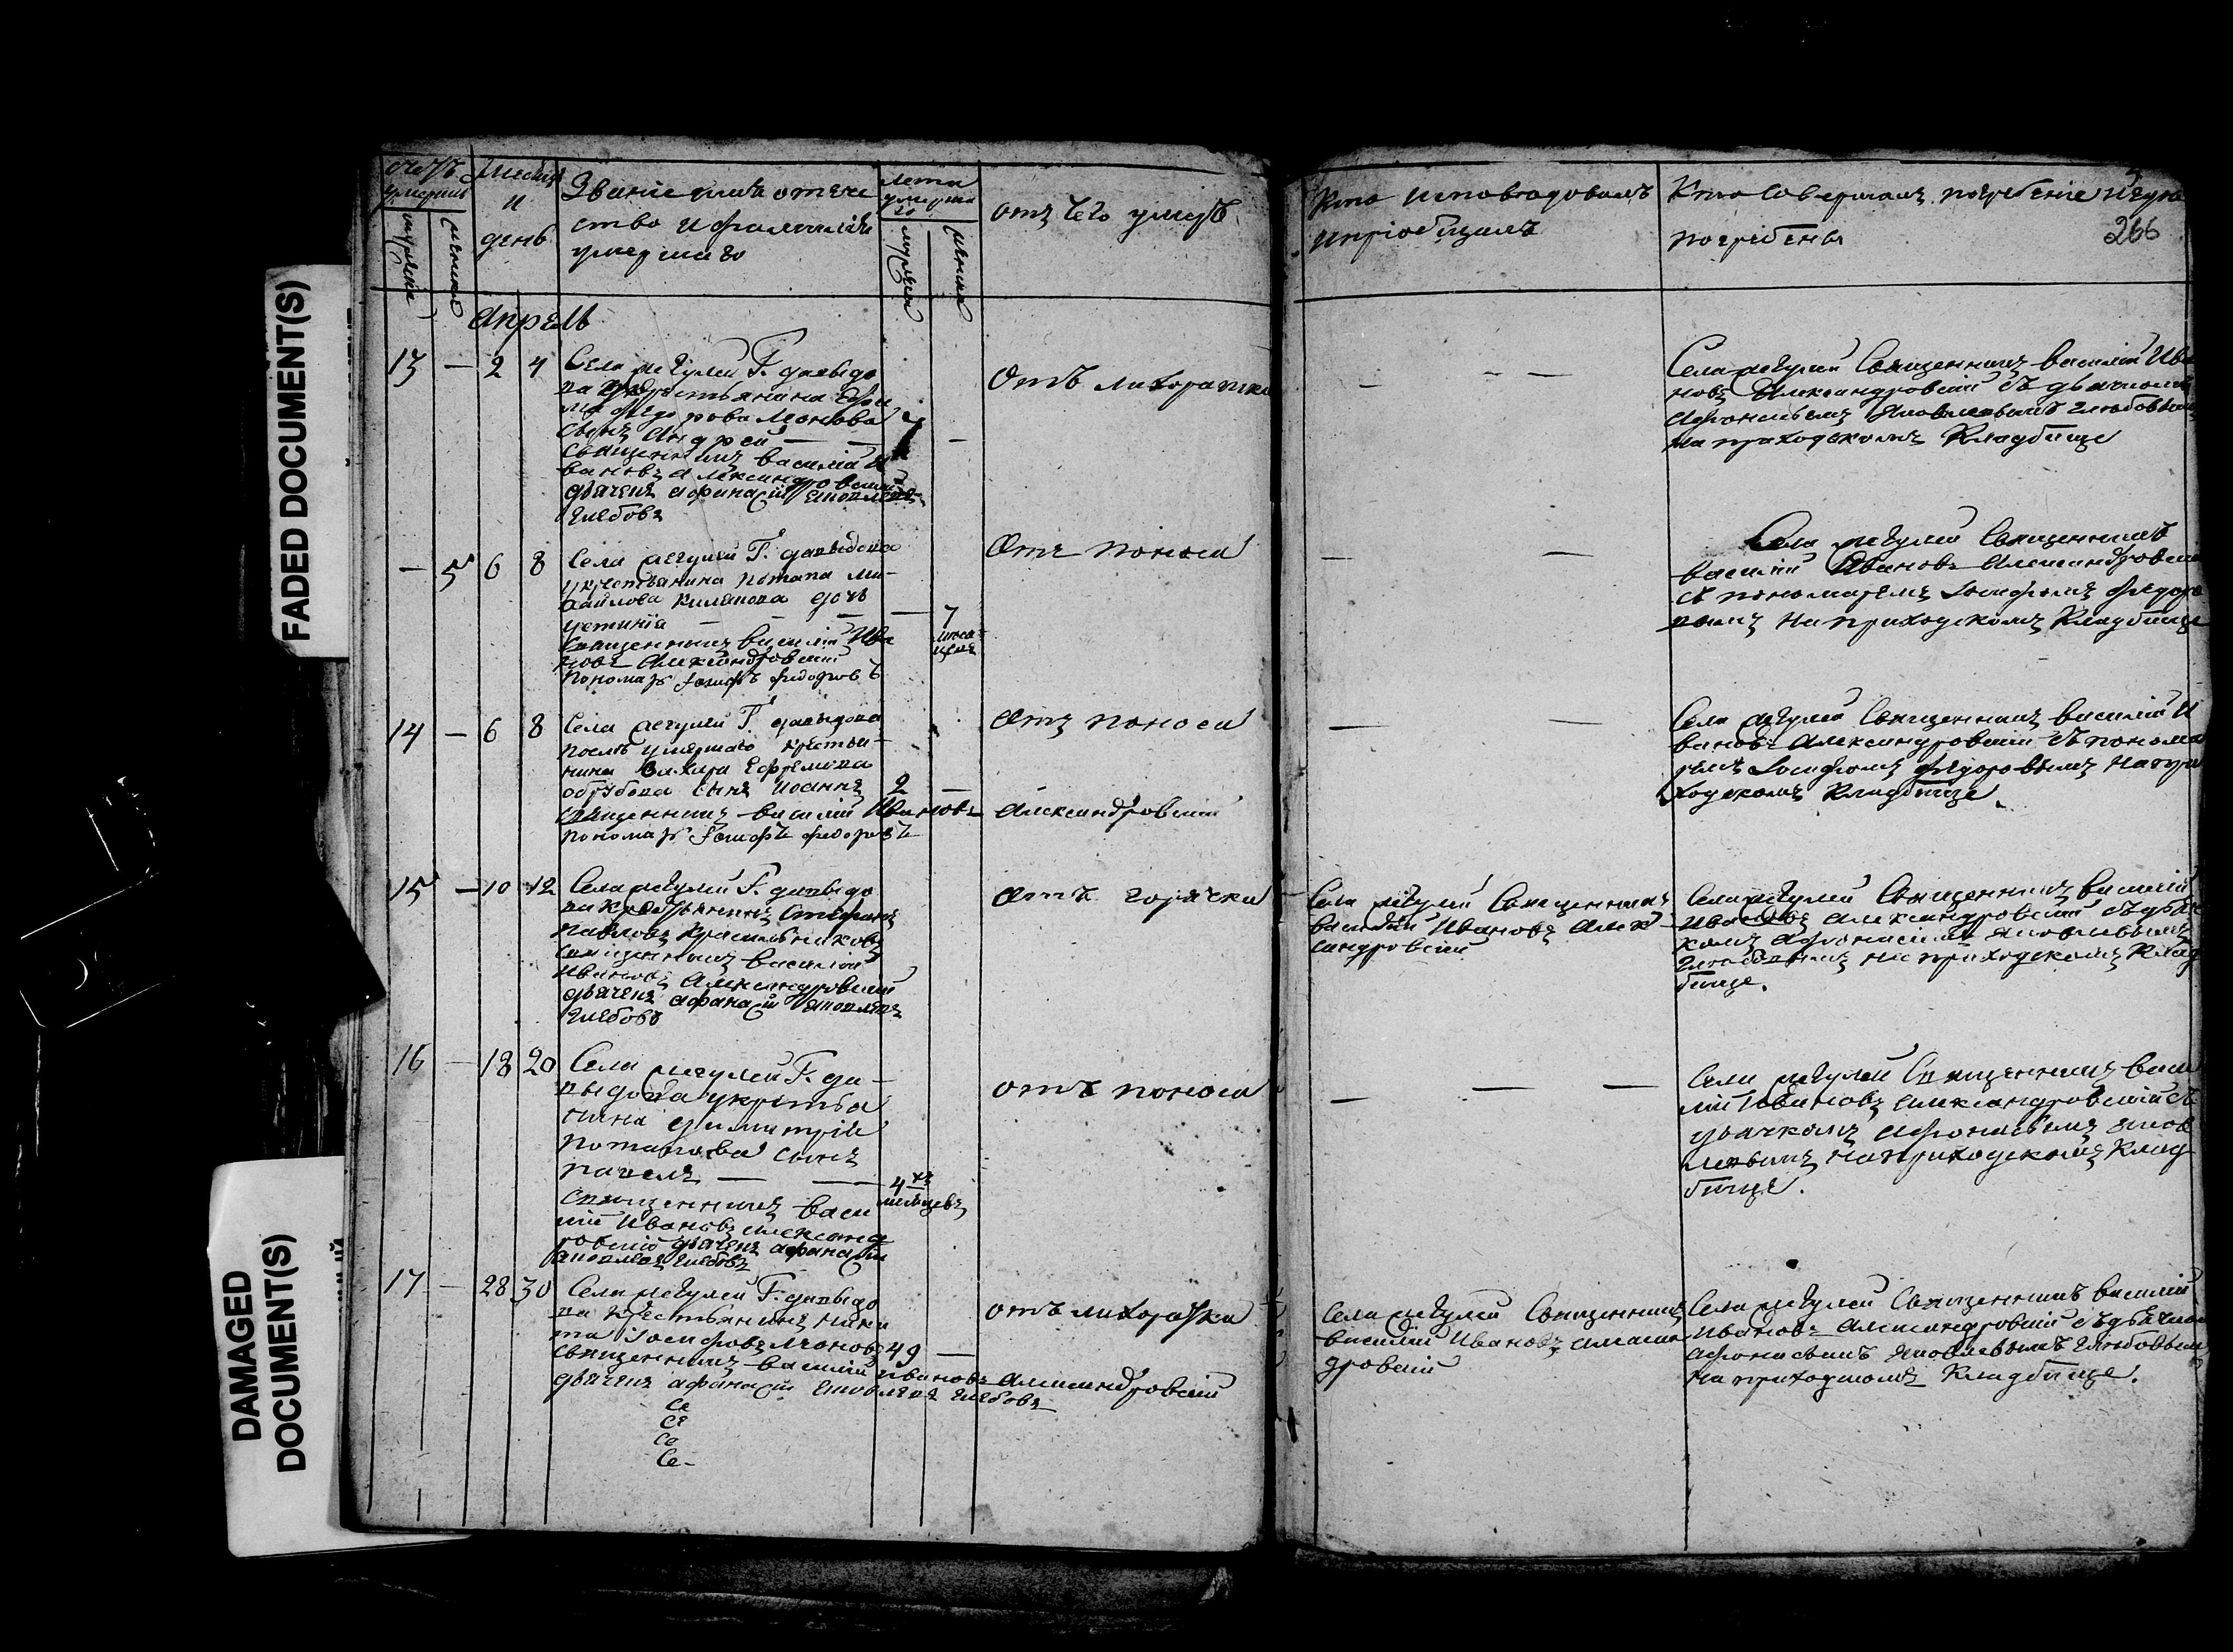 FADED DOCUMENT(S)
DAMAGED
DOCUMENT(S)
счетъ
умерши
мужеска
женска
Месяцъ
и
день
Званіе имя отече
ство и фамилія
умершаго
лета
умерша
го
мужеска
женска
отъ чего умеръ
Кто исповедовалъ
и пріобщалъ
Кто совершалъ погребеніе и где
погребены
266
Апрель
13 — 2 4
Села Г. давыдо
ва крестьянина
федорова Леонова
сынъ Андрей — —
священникъ василий И
вановъ Александровский
дьячекъ афанасий яковлевъ
глебовъ
7 —
Отъ лихорадки
— — —
Села священникъ василий Ива
новъ Александровский съ дьячкомъ
Афонасьемъ Яковлевымъ глебовымъ
на приходскомъ Кладбище
— 5 6 8
Села Г. давыдова
крестьянина потапа ми-
хайлова дочь
устинія — —
священникъ василий Ива
новъ Александровский
пономарь Іосифъ федоровъ
— 7
меся
цевъ
Отъ поноса
— —
Села священникъ
василий Ивановъ Александровский
съ пономаремъ Іосифомъ федоро
вымъ на приходскомъ Кладбище
14 — 6 8
Села Г. давыдова
после умершаго крестья-
нина Захара Ефремова
сынъ Иоаннъ
священникъ василий Ивановъ Александровский
пономарь Іосифъ федоровъ
2 —
Отъ поноса
— —
Села священникъ василий И
вановъ Александровский съ понома
ремъ Іосифомъ федоровымъ на при
ходскомъ Кладбище
15 — 10 12
Села Г. давыдо
ва крестьянинъ Стефанъ
павловъ Красильниковъ
священникъ василий
Ивановъ Александровский
дьячекъ афанасий яковлевъ
глебовъ
отъ горячки
Села священникъ
василий Ивановъ Алек
сандровский
Села священникъ василий
Ивановъ Александровский съ дьяч
комъ Афонасьемъ яковлевымъ
глебовымъ на приходскомъ Клад
бище.
16 — 18 20
Села Г. да-
выдова у крестья
нина димитрія
потапова сынъ
павелъ — —
священникъ васи
лий Ивановъ Александ
ровский дьячекъ афанасий
яковлевъ глебовъ
4хъ
месяцевъ
отъ поноса
— — —
Села священникъ васи
лий Ивановъ Александровский съ
дьячкомъ Афонасьемъ яков
левымъ на приходскомъ Клад
бище.
17 — 28 30
Села Г. давыдо
ва крестьянинъ Ники
та Іосифовъ Леоновъ
священникъ василий Ивановъ Александровский
дьячекъ афанасий яковлевъ глебовъ
49 —
отъ лихорадки
Села священникъ
василий Ивановъ Алексан
дровский
Села священникъ василий
Ивановъ Александровский съ дьячком
Афонасьемъ яковлевымъ глебовымъ
на приходскомъ Кладбище.